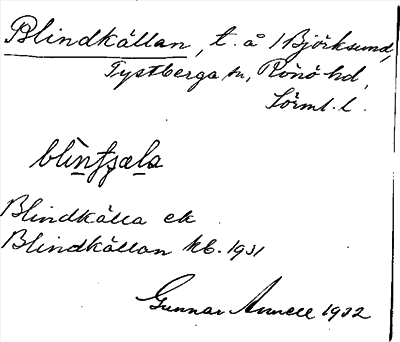 Blindkällan, t. å /Björksund,
Tystberga sn, Rönö hd,
Sörml. l.
blìntʃæla
Blindkälla ek
Blindkällan kb. 1931
Gunnar Annell 1932